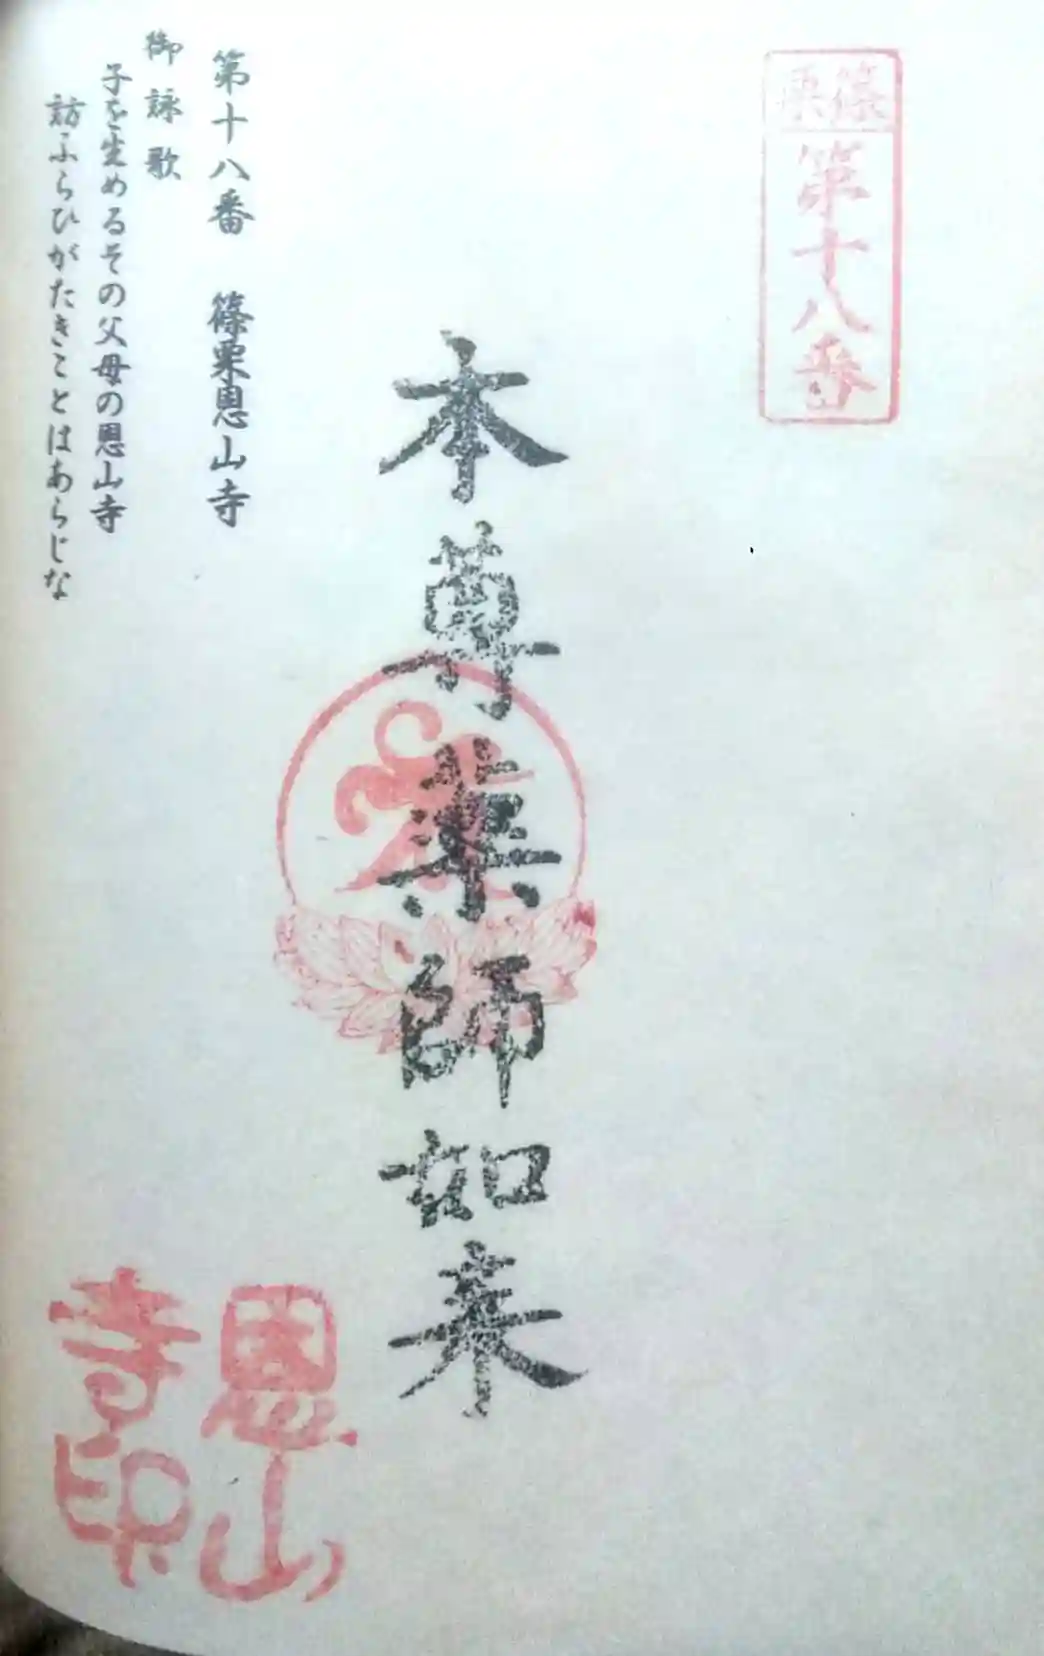 篠栗
第十八番
本尊薬師如来
恩山
寺印
第十八番 篠栗恩山寺
御詠歌
子を生めるその父母の恩山寺
訪ふらひがたきことはあらじな